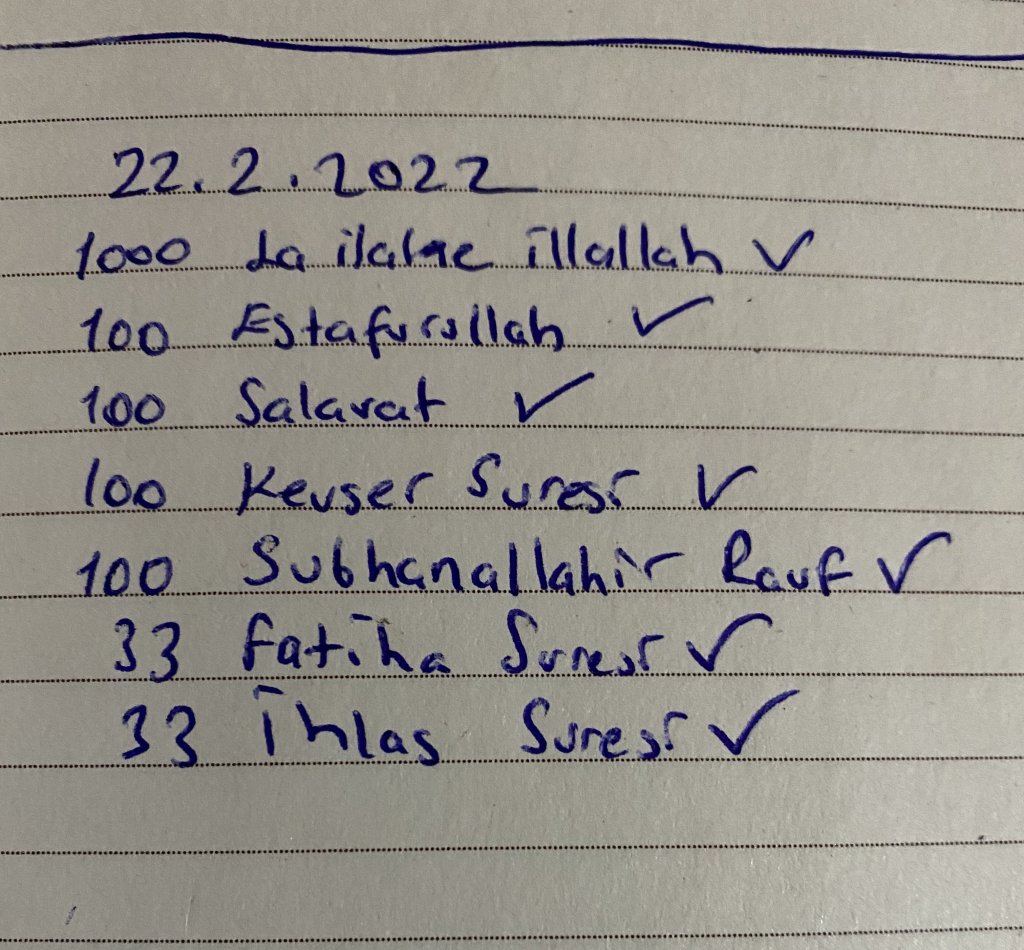 22.2.2022
1000 La ilahe illallah ✓
100 Estafurullah ✓
100 Salavat ✓
100 Kevser Suresi ✓
100 Subhanallahir Rauf ✓
33 Fatiha Suresi ✓
33 İhlas Suresi ✓